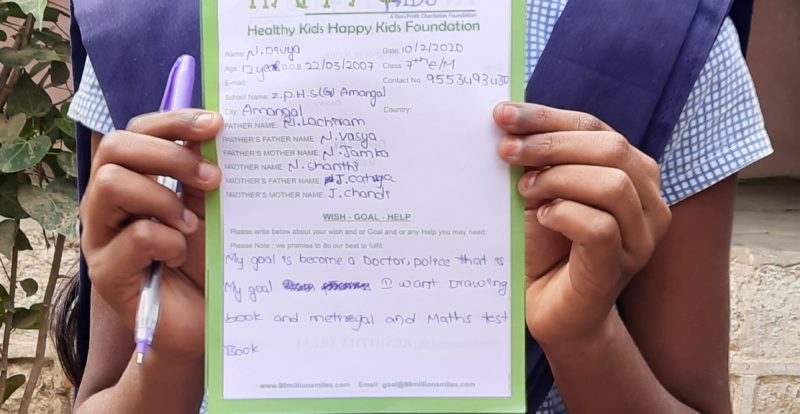 A Non-Profit Charitable Foundation
Healthy Kids Happy Kids Foundation
Name: N. Divya Date: 10/2/2020
Age: 12 year D.O.B 22/03/2007 Class: 7th E/M
E-mail: Contact No 9553493430
School Name: Z.P.H.S(G) Amangal
City: Amangal Country:
FATHER NAME: N. Lachiram
FARTHER'S FATHER NAME: N. Vasya
FARTHER'S MOTHER NAME: N. Jamko
MOTHER NAME: N. shanthi
MOTHER'S FATHER NAME: J.
MOTHER'S MOTHER NAME: J. chandi
WISH - GOAL - HELP
Please write below about your wish and or Goal and or any Help you may need:
Please Note : we promise to do our best to fulfil:
My goal is become a Doctor, police that is
My goal I want Drawing
book and metireyal and Maths test
Book
www.96millionsmiles.com Email: goal@96millionsmiles.com